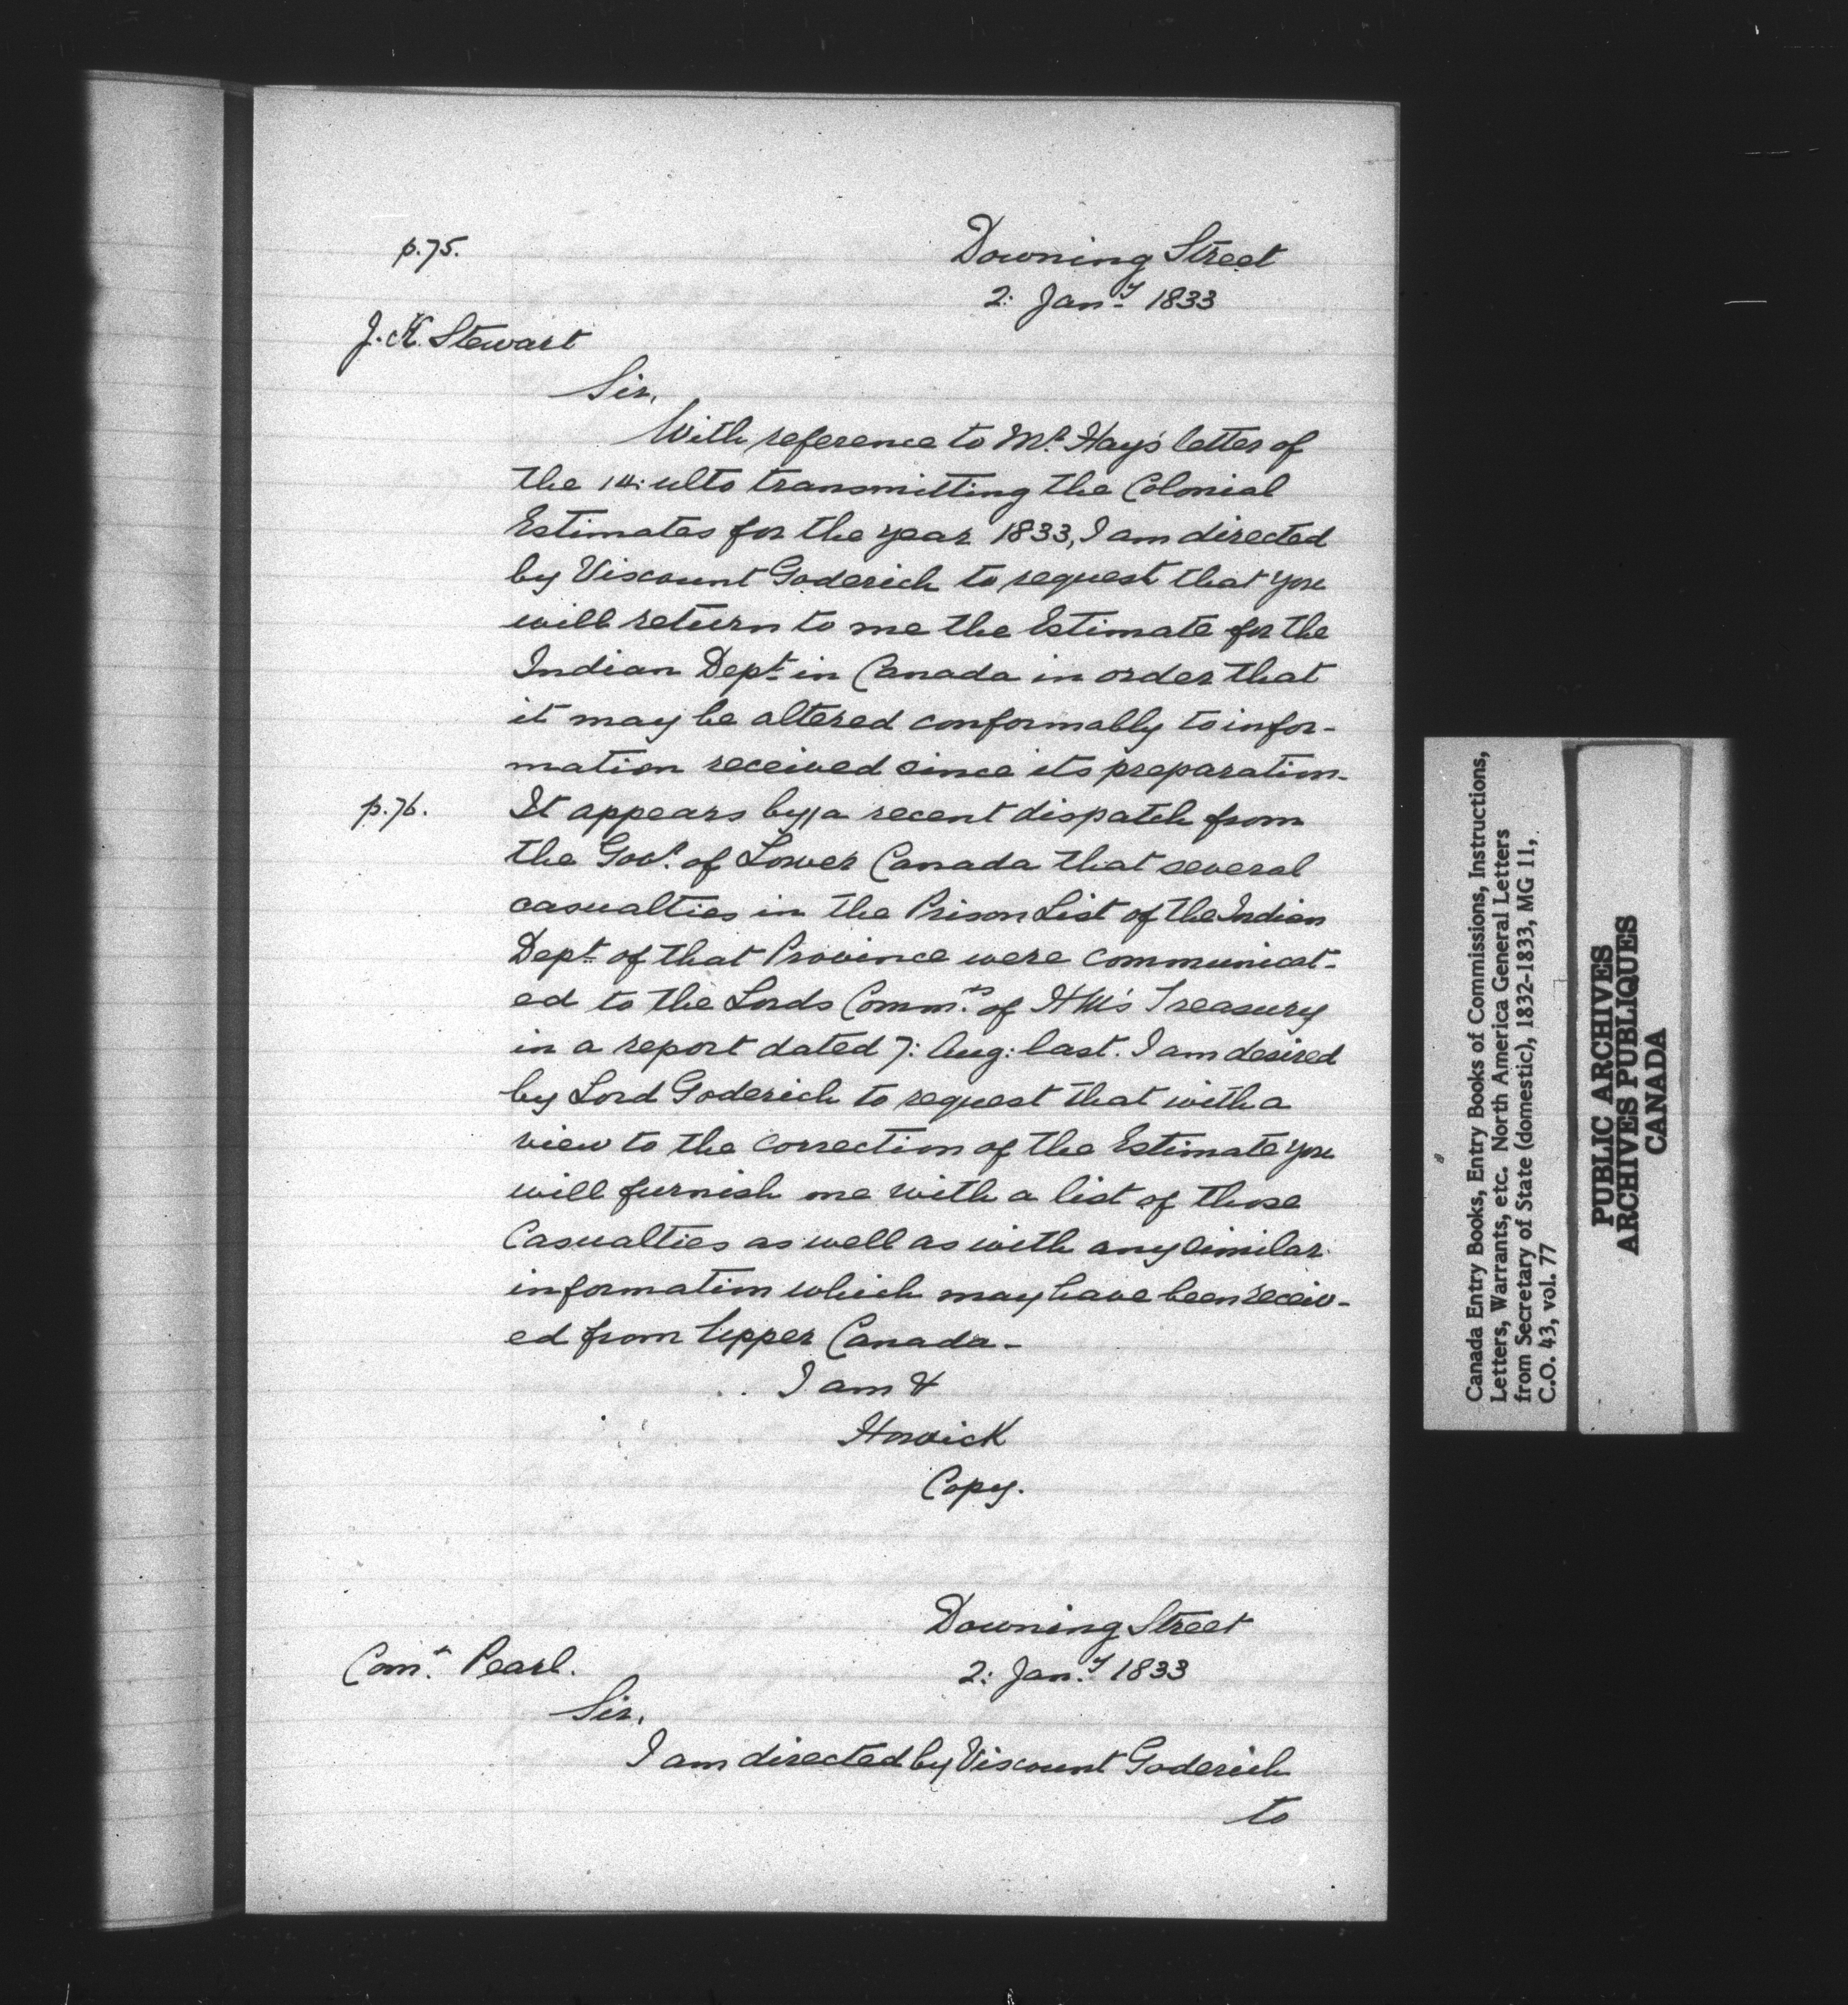 p.75.
Downing Street
2: Jany 1833
J. K. Stewart
Sir,
With reference to Mr. Hay's letter of
the 14: ulto transmitting the Colonial
Estimates for the year 1833, I am directed
by Viscount Goderich to request that you
will return to me the Estimate for the
Indian Dept. in Canada in order that
it may be altered conformably to infor-
mation received since its preparation-
p.76.
It appears by // a recent dispatch from
the Govr. of Lower Canada that several
casualties in the Prison List of the Indian
Dept. of that Province were communicat-
ed to the Lords Commrs. of H M's Treasury
in a report dated 7: Aug: last. I am desired
by Lord Goderich to request that with a
view to the correction of the Estimate you
will furnish me with a list of those
Casualties as well as with any similar
information which may have been receiv-
ed from Upper Canada-
I am &
Howick
Copy.
Downing Street
2: Jany 1833
Comr. Pearl.
Sir,
I am directed by Viscount Goderich
to
Canada Entry Books, Entry Books of Commissions, Instructions,
Letters, Warrants, etc. North America General Letters
from Secretary of State (domestic), 1832-1833, MG 11,
C.O. 43, vol. 77
PUBLIC ARCHIVES
ARCHIVES PUBLIQUES
CANADA